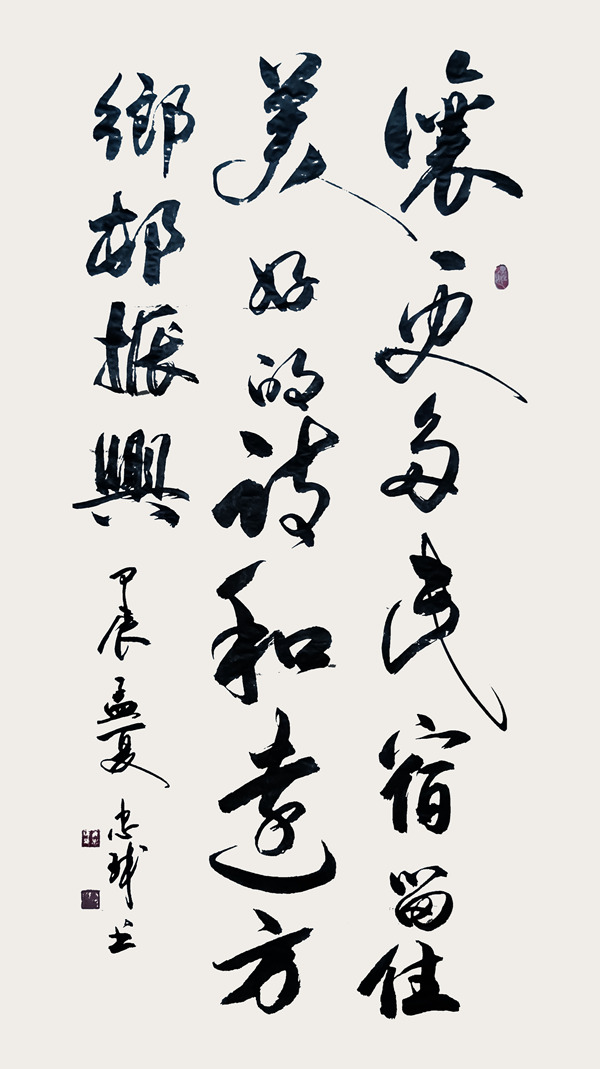 讓更多民宿留住
美好的詩和遠方
鄉邨振興 甲辰孟夏 忠球书